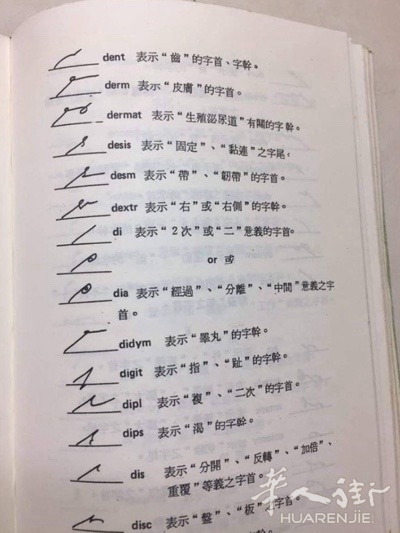 dent 表示“齒”的字首、字幹。
derm 表示“皮膚”的字首。
dermat 表示“生殖泌尿道”有關的字幹。
desis 表示“固定”、“黏連”之字尾。
desm 表示“帶”、“韌帶”的字首。
dextr 表示“右”或“右側”的字幹。
di 表示“2次”或“二”意義的字首。
or 或
dia 表示“經過”、“分離”、“中間”意義之字
首。
didym 表示“睪丸”的字幹。
digit 表示“指”、“趾”的字幹。
dipl 表示“複”、“二次”的字首。
dips 表示“渴”的字幹。
dis 表示“分開”、“反轉”、“加倍”、
重覆”等義之字首。
disc 表示“盤”、“板”之字首、
華人街
HUARENJIE.